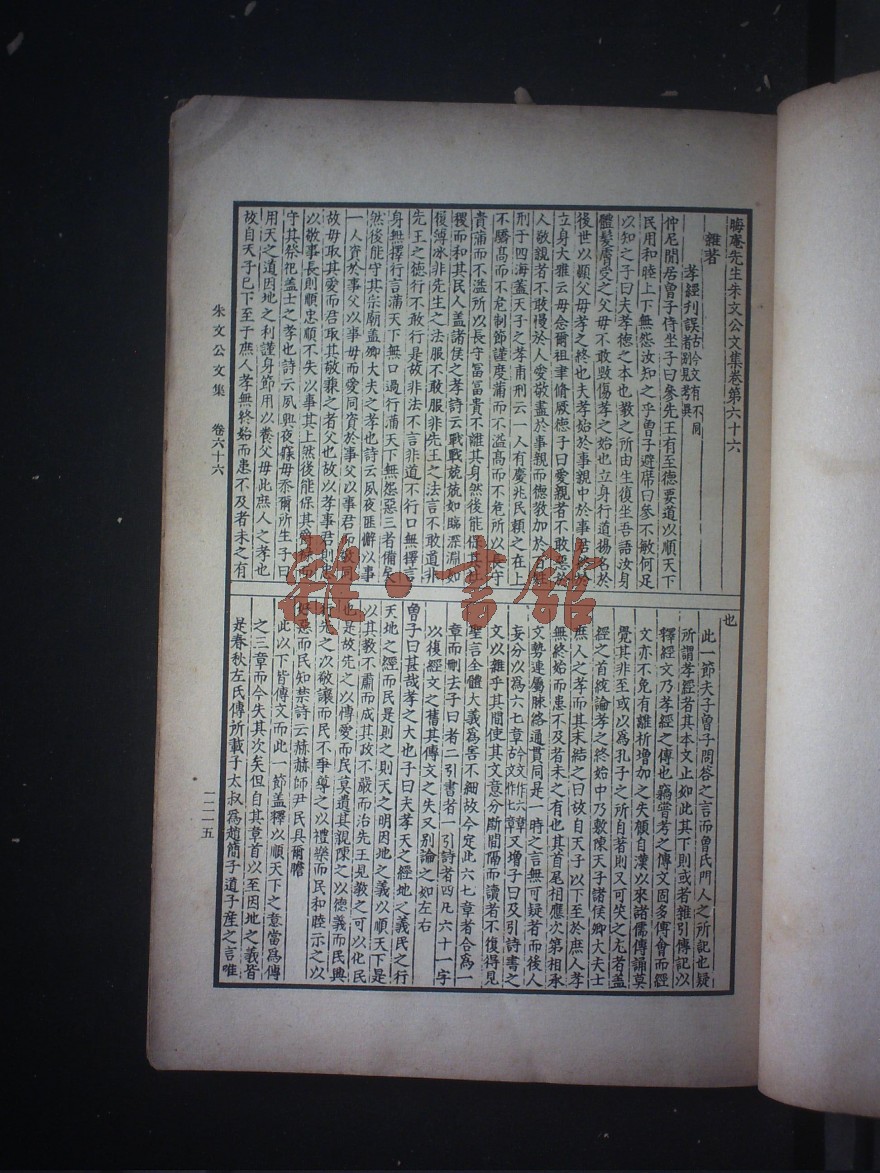 晦庵先生朱文公文集卷第六十六
雜著
孝經刊誤古今文有不同者別見考異
仲尼閒居曾子侍坐子曰參先王有至德要道以順天下
民用和睦上下無怨汝知之乎曾子避席曰參不敏何足
以知之子曰夫孝德之本也教之所由生復坐吾語汝身
體髮膚受之父母不敢毀傷孝之始也立身行道揚名於
後世以顯父母孝之終也夫孝始於事親中於事君終於
立身大雅云毋念爾祖聿脩厥德子曰愛親者不敢惡於
人敬親者不敢慢於人愛敬盡於事親而德教加於百姓
刑于四海蓋天子之孝甫刑云一人有慶兆民賴之在上
不驕高而不危制節謹度滿而不溢高而不危所以長守
貴滿而不溢所以長守富富貴不離其身然後能保其社
稷而和其民人蓋諸侯之孝詩云戰戰兢兢如臨深淵如
履薄冰非先王之法服不敢服非先王之法言不敢道非
先王之德行不敢行是故非法不言非道不行口無擇言
身無擇行言滿天下無口過行滿天下無怨惡三者備矣
然後能守其宗廟蓋卿大夫之孝也詩云夙夜匪懈以事
一人資於事父以事母而愛同資於事父以事君而敬同
故母取其愛而君取其敬兼之者父也故以孝事君則忠
以敬事長則順忠順不失以事其上然後能保其爵祿而
守其祭祀蓋士之孝也詩云夙興夜寐毋忝爾所生子曰
用天之道因地之利謹身節用以養父母此庶人之孝也
故自天子已下至于庶人孝無終始而患不及者未之有
也
此一節夫子曾子問荅之言而曾氏門人之所記也疑
所謂孝經者其本文止如此其下則或者雜引傳記以
釋經文乃孝經之傳也竊嘗考之傳文固多傅會而經
文亦不免有離析增加之失顧自漢以來諸儒傳誦莫
覺其非至或以為孔子之所自著則又可笑之尤者蓋
經之首統論孝之終始中乃敷陳天子諸侯卿大夫士
庶人之孝而其末結之曰故自天子以下至於庶人孝
無終始而患不及者未之有也其首尾相應次第相承
文勢連屬脉絡通貫同是一時之言無可疑者而後人
妄分以為六七章今文作六章古文作七章又增子曰及引詩書之
文以雜乎其間使其文意分斷間隔而讀者不復得見
聖言全體大義為害不細故今定此六七章者合為一
章而刪去子曰者二引書者一引詩者四凡六十一字
以復經文之舊其傳文之失又別論之如左右
曾子曰甚哉孝之大也子曰夫孝天之經地之義民之行
天地之經而民是則之則天之明因地之義以順天下是
以其教不肅而成其政不嚴而治先王見教之可以化民
也是故先之以博愛而民莫遺其親陳之以德義而民興
行先之以敬讓而民不爭導之以禮樂而民和睦示之以
好惡而民知禁詩云赫赫師尹民具爾瞻
此以下皆傳文而此一節蓋釋以順天下之意當為傳
之三章而今失其次矣但自其章首以至因地之義皆
是春秋左氏傳所載子太叔為趙簡子道子產之言唯
朱文公文集 卷六十六
一二一五
雜·書館